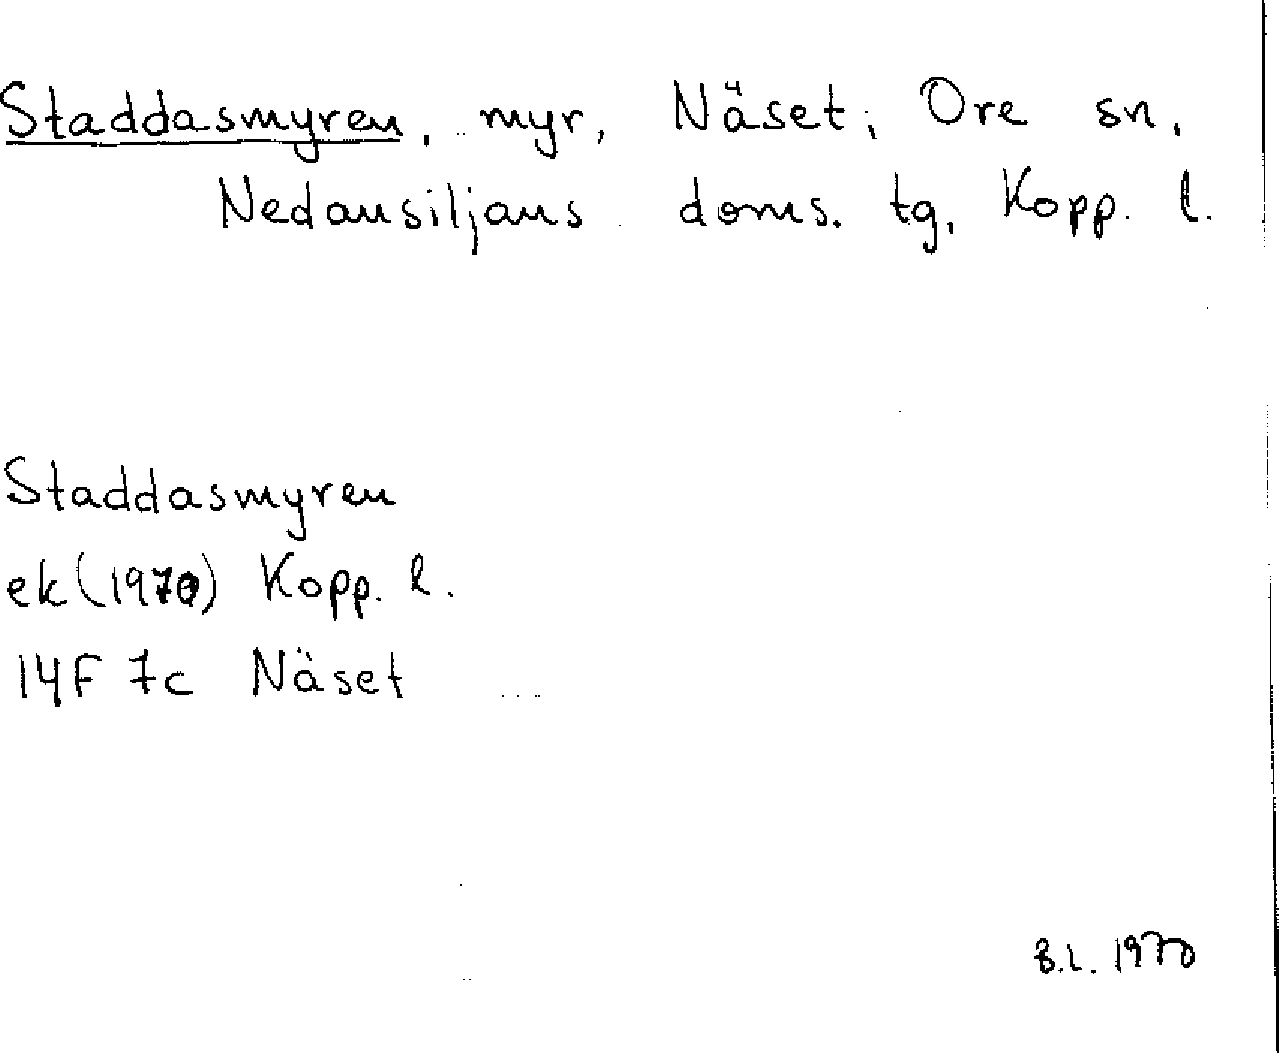 Staddasmyren, myr, Näset, Ore sn,
Nedansiljans doms. tg, Kopp. l.
Staddasmyren
ek (1970) Kopp. l.
14F 7c Näset
B.L. 1970